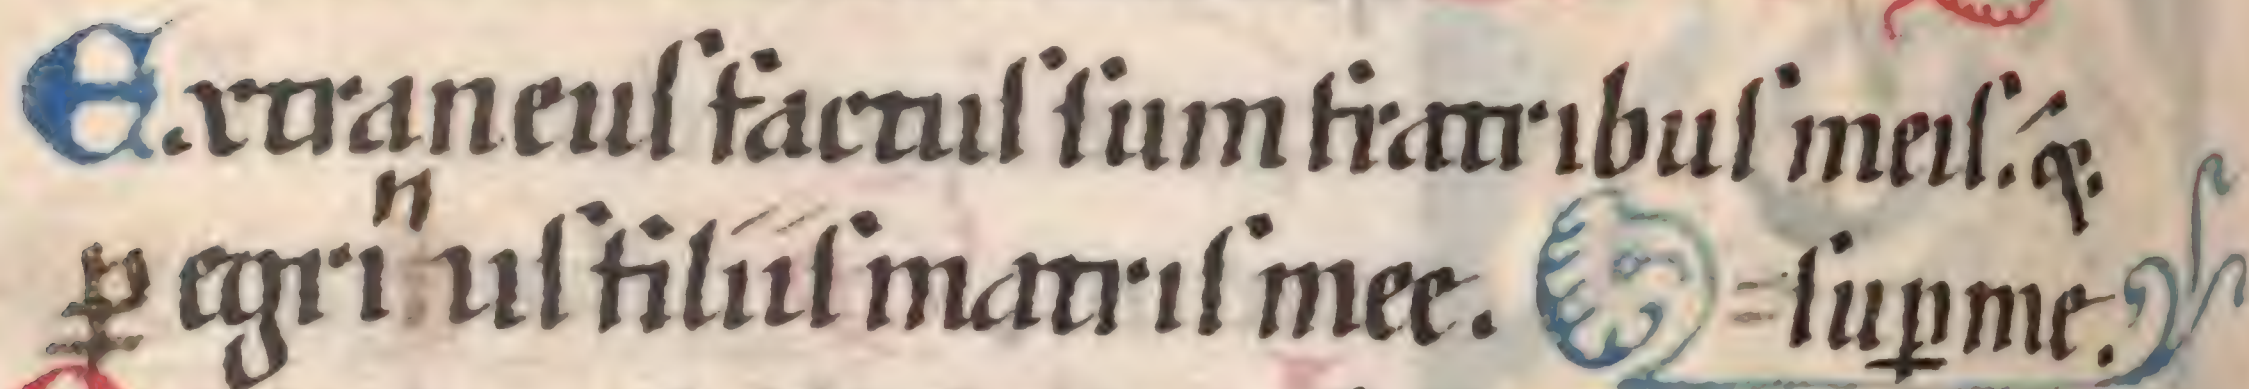 E.xtraneuſ factuſ ſum fratribuſ meiſ. ꝙ.
ꝑegrinuſ filiiſ matriſ mee. = ſuꝑ me.